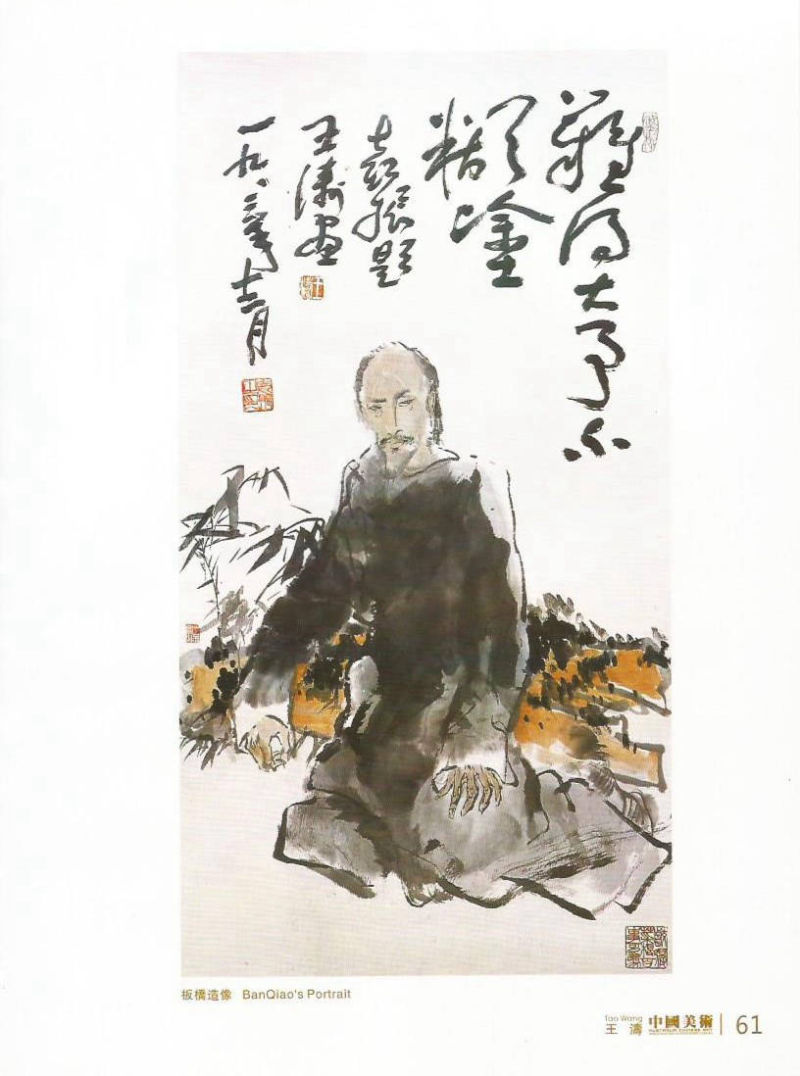 難得大事不
糊塗
振題
王濤画
一九八三年十二月
板橋造像 BanQiao's Portrait
Tao Wang
王 濤 中國美術 61